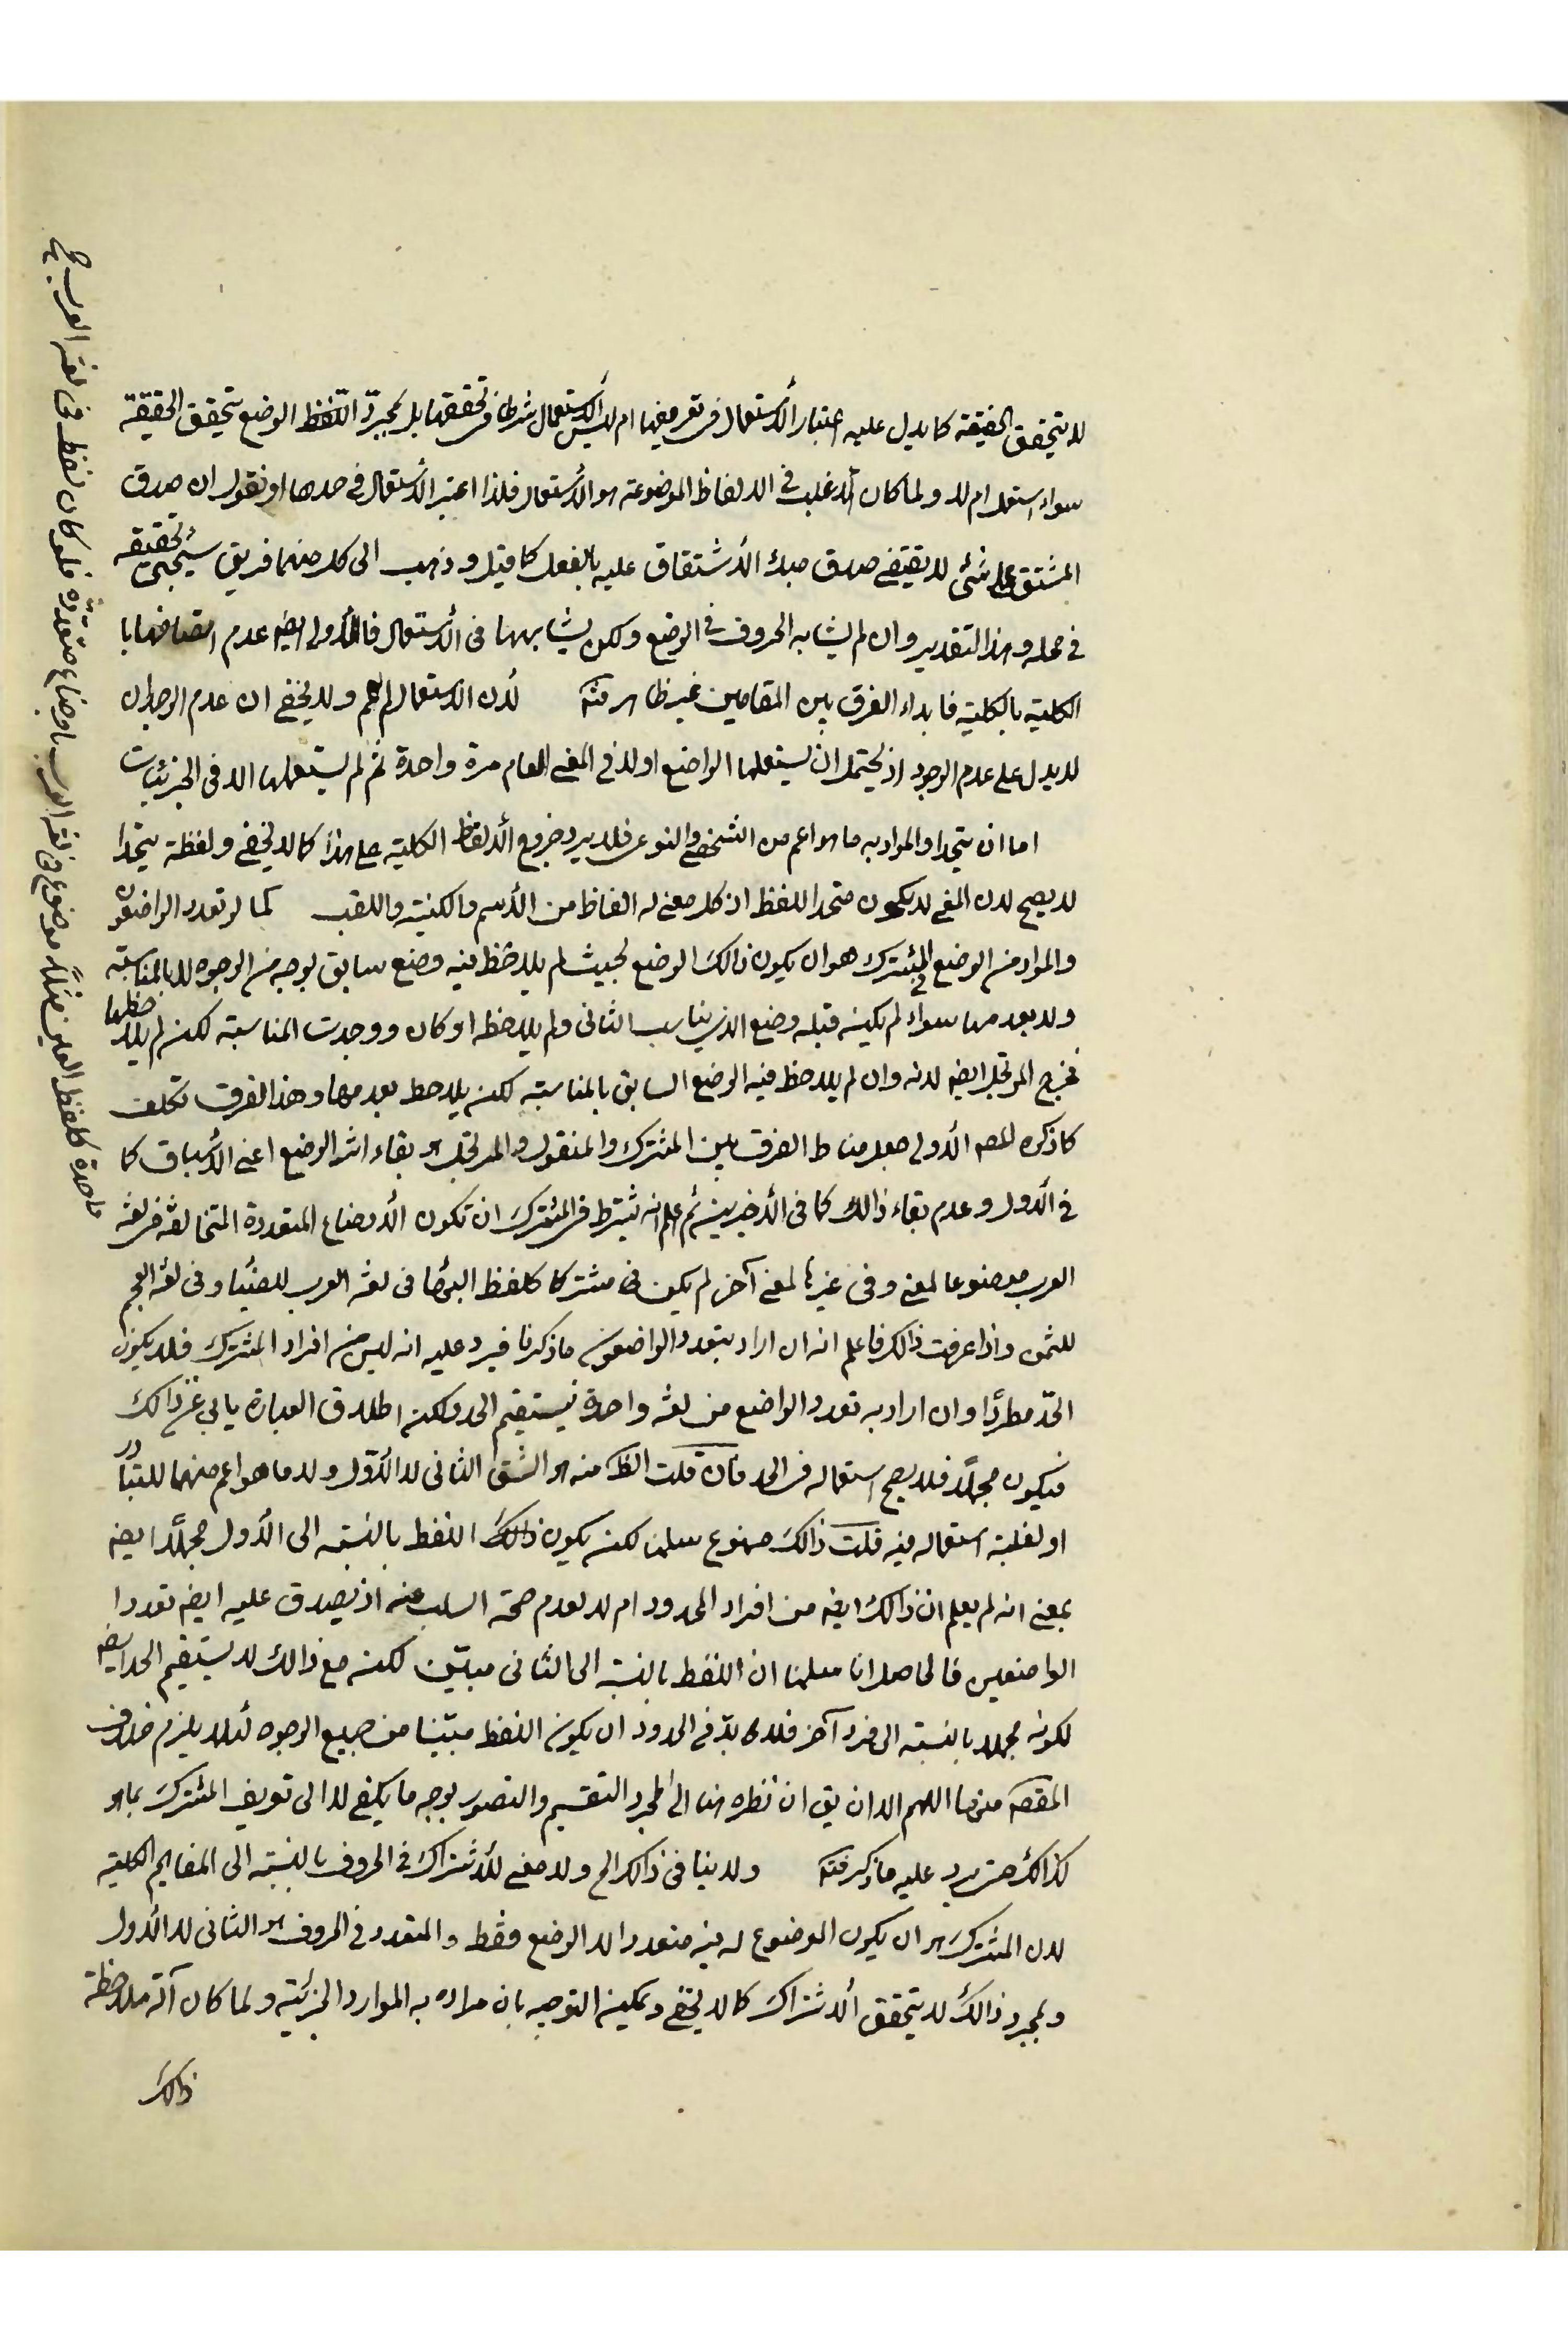 لا يتحقق الحقيقة كما يدل عليه اعتبار الأستعمال فى تعريفها ام ليس الأستعمال شرطا فى تحققها بل بمجرد اللفظ الوضع يتحقق الحقيقة
سواء استعمل ام لا ولما كان ألاغلب فى الالفاظ الموضوعة هو الأستعمال فلذا اعتبر الأستعمال فى حدها او نقول ان صدق
المشتق على شئ لا يقتضى صدق مبدء الأشتقاق عليه بالفعل كما قيل و ذهب الى كل منهما فريق سيجئ تحقيقه
فى محله و هذا التقدير وان لم يشابه الحروف فى الوضع ولكن يشابهها فى الأستعمال فالأولى ايضه عدم اتصافها با
الكلية بالكلية فابداء الفرق بين المقامين غير ظاهر منه لأن الاستعمال لم ولا يخفى ان عدم الوجدان
لا يدل على عدم الوجود اذ يحتمل ان يستعملها الواضع اولا فى المعنى العام مرة واحدة ثم لم يستعملها الا فى الجزئيات
اما ان يتحدا والمراد به ما هو اعم من الشخصى والنوعى فلا يرد خروج ألالفاظ الكلية على هذا كما لا يخفى ولفظة يتحدا
لا يصح لان المعنى لا يكون متحد اللفظ اذ كل معنى له الفاظ من الأسم والكنية واللقب كما لو تعدد الواضعون
والمراد من الوضع فى المشترك هو ان يكون ذالك الوضع بحيث لم يلاحظ فيه وضع سابق بوجه من الوجوه لا بالمناسبة
ولا بعدمها سواء لم يكن قبله وضع الذى يناسب الثانى ولم يلاحظه او كان ووجدت المناسبة لكن لم يلاحظها
فخرج المرتجل ايضه لانه وان لم يلاحظ فيه الوضع السابق بالمناسبة لكن يلاحظ بعدمها وهذا الفرق تكلف
كما ذكره المصه الأولى جعل مناط الفرق بين المشترك والمنقول والمرتجل هو بقاء اثر الوضع اعنى الأسباق كما
فى الأول و عدم بقاء ذالك كما فى الأخيرين ثم اعلم انه يشترط فى المشترك ان تكون الأوضاع المتعددة المتخالفة فى لغة
واحدة كلفظ العين مثلاً موضوع فى لغة العرب باوضاع متعددة فلو كان لفظ فى لغة العرب
العرب موضوعا لمعنى وفى غيرها لمعنى آخر لم يكن مشتركا كلفظ فى لغة العرب وفى لغة العجم
للثمن واذا عرفت ذالك فاعلم انه ان اراد بتعدد الواضعون ماذكرنا فيرد عليه انه ليس من افراد المشترك فلا يكون
الحد مطردًا وان اراد به تعدد الواضع من لغة واحدة فيستقيم الحد ولكن اطلاق العبارة يابى عن ذالك
فيكون مجملًا فلا يصح استعماله فى الحد فان قلت الظ منه هو الشق الثانى لا الأول ولا ما هو اعم منهما للتبادر
او لغلبة استعماله فيه قلت ذالك ممنوع سلمنا لكن يكون ذالك اللفظ بالنسبة الى الأول مجملًا ايضه
بمعنى انه لم يعلم ان ذالك ايضه من افراد المحدود ام لا لعدم صحة السلب عنه اذ يصدق عليه ايضه تعدد ا
الواضعين فالحاصل انا سلمنا ان اللفظ بالنسبة الى الثانى مبين لكن مع ذالك لا يستقيم الحد ايضه
لكونه مجملا بالنسبة الى فرد آخر فلا بدّ فى الحدود ان يكون اللفظ مبيّنا من جميع الوجوه لئلا يلزم خلاف
المقصه منها اللهم الا ان يق ان نظره هنا الى مجرد التقسيم والتصور بوجه ما يكفى لا الى تعريف المشترك بما هو
كذالك حتى يرد عليه ما ذكر منه ولا ينافى ذالك الخ ولا معنى للأشتراك فى الحروف بالنسبة الى المفاهيم الكلية
لان المشترك هو ان يكون الموضوع له فيه متعددا لا الوضع فقط والمتعدد فى الحروف هو الثانى لا الأول
وبمجرد ذالك لا يتحقق ألاشتراك كما لا يخفى ويمكن التوجيه بان مراده به الموارد الجزئية ولما كان آلة ملاحظة
ذالك